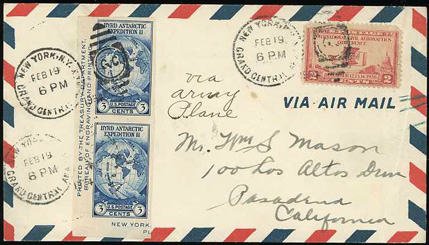 NEW YORK, N.Y.
FEB 19
6 PM
GRAND CENTRAL
BYRD ANTARCTIC
EXPEDITION II
U.S. POSTAGE
3 CENTS 3
PRINTED BY THE TREASURY DEPARTMENT
BUREAU OF ENGRAVING AND PRINTING
BYRD ANTARCTIC
EXPEDITION II
U.S. POSTAGE
3 CENTS 3
NEW YORK
NEW YORK, N.Y.
FEB 19
6 PM
GRAND CENTRAL
FEB 19
6 PM
GRAND CENTRAL
2 CENTS 2
via
army
Plane
VIA AIR MAIL
Mr. Wm S. Mason
100 Los Altos Drive
Pasadena
California